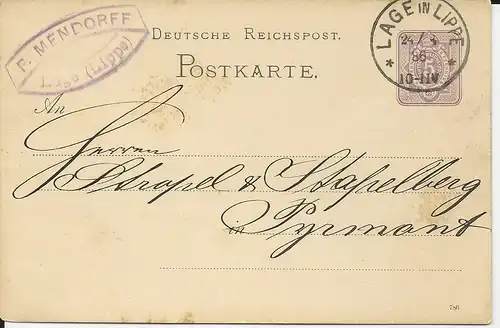 F. MENDORFF
Lage (Lippe)
DEUTSCHE REICHSPOST.
POSTKARTE.
LAGE IN LIPPE
24/5
86
10-11V
An
Herren
Stropel & Stapelberg
in Pyrmont